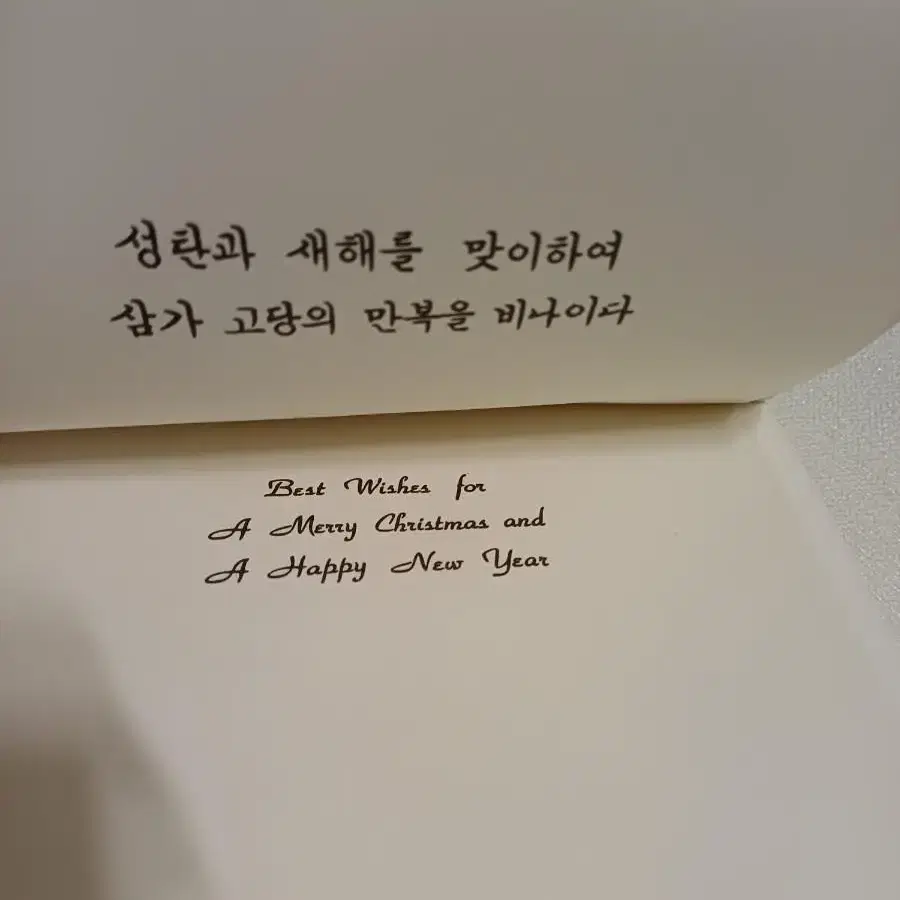 성탄과 새해를 맞이하여
삼가 고당의 만복을 비나이다
Best Wishes for
A Merry Christmas and
A Happy New Year